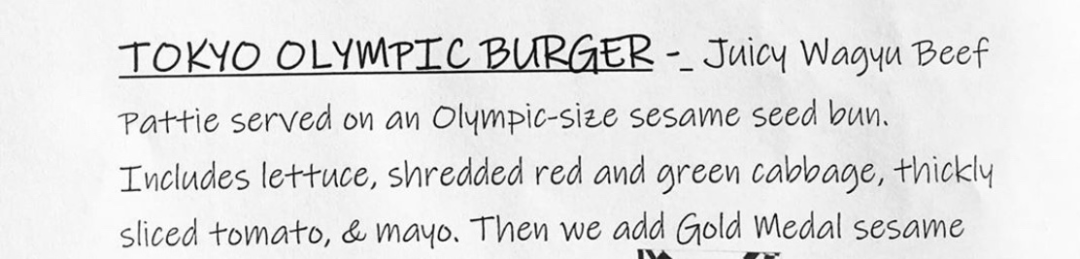 TOKYO OLYMPIC BURGER - Juicy Wagyu Beef
Pattie served on an Olympic-size sesame seed bun.
Includes lettuce, shredded red and green cabbage, thickly
sliced tomato, & mayo. Then we add Gold Medal sesame